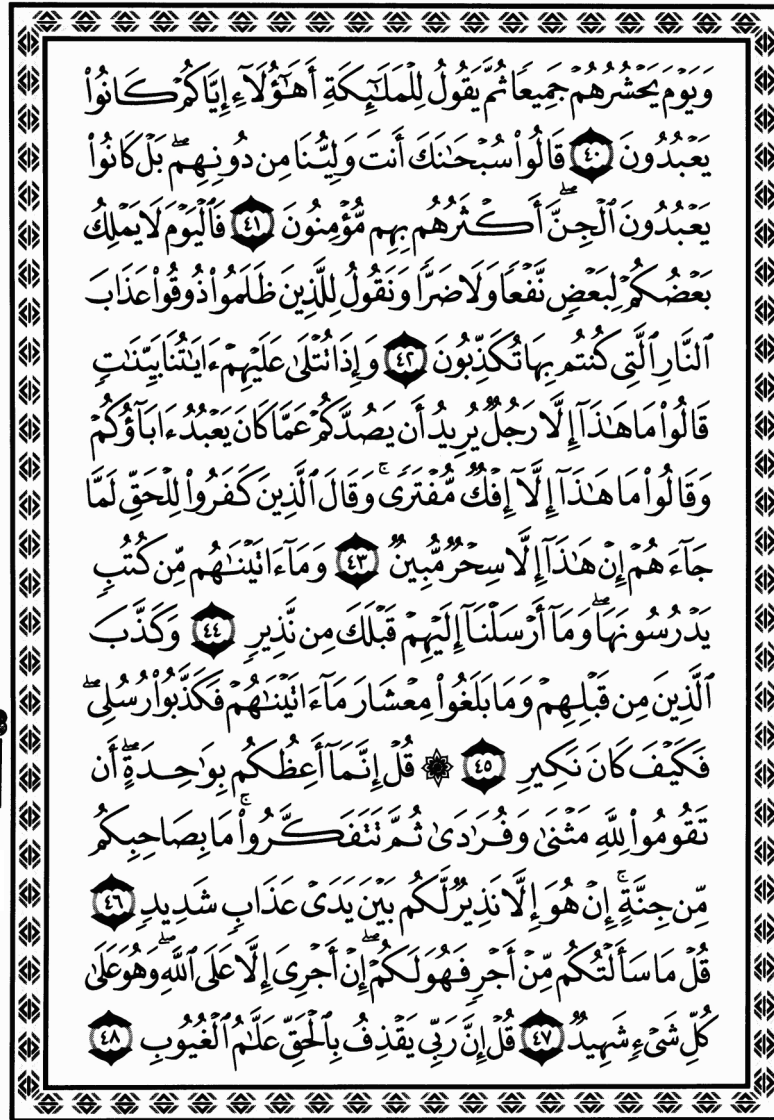 وَيَوْمَ يَحْشُرُهُمْ جَمِيعًا ثُمَّ يَقُولُ لِلْمَلَٰٓئِكَةِ أَهَٰٓؤُلَآءِ إِيَّاكُمْ كَانُوا۟
يَعْبُدُونَ ٤٠ قَالُوا۟ سُبْحَٰنَكَ أَنتَ وَلِيُّنَا مِن دُونِهِم ۖ بَلْ كَانُوا۟
يَعْبُدُونَ ٱلْجِنَّ ۖ أَكْثَرُهُم بِهِم مُّؤْمِنُونَ ٤١ فَٱلْيَوْمَ لَا يَمْلِكُ
بَعْضُكُمْ لِبَعْضٍ نَّفْعًا وَلَا ضَرًّا وَنَقُولُ لِلَّذِينَ ظَلَمُوا۟ ذُوقُوا۟ عَذَابَ
ٱلنَّارِ ٱلَّتِى كُنتُم بِهَا تُكَذِّبُونَ ٤٢ وَإِذَا تُتْلَىٰ عَلَيْهِمْ ءَايَٰتُنَا بَيِّنَٰتٍ
قَالُوا۟ مَا هَٰذَآ إِلَّا رَجُلٌ يُرِيدُ أَن يَصُدَّكُمْ عَمَّا كَانَ يَعْبُدُ ءَابَآؤُكُمْ
وَقَالُوا۟ مَا هَٰذَآ إِلَّآ إِفْكٌ مُّفْتَرًى ۚ وَقَالَ ٱلَّذِينَ كَفَرُوا۟ لِلْحَقِّ لَمَّا
جَآءَهُمْ إِنْ هَٰذَآ إِلَّا سِحْرٌ مُّبِينٌ ٤٣ وَمَآ ءَاتَيْنَٰهُم مِّن كُتُبٍ
يَدْرُسُونَهَا ۖ وَمَآ أَرْسَلْنَآ إِلَيْهِمْ قَبْلَكَ مِن نَّذِيرٍ ٤٤ وَكَذَّبَ
ٱلَّذِينَ مِن قَبْلِهِمْ وَمَا بَلَغُوا۟ مِعْشَارَ مَآ ءَاتَيْنَٰهُمْ فَكَذَّبُوا۟ رُسُلِى ۖ
فَكَيْفَ كَانَ نَكِيرِ ٤٥ ۞ قُلْ إِنَّمَآ أَعِظُكُم بِوَٰحِدَةٍ ۖ أَن
تَقُومُوا۟ لِلَّهِ مَثْنَىٰ وَفُرَٰدَىٰ ثُمَّ تَتَفَكَّرُوا۟ ۚ مَا بِصَاحِبِكُم
مِّن جِنَّةٍ ۚ إِنْ هُوَ إِلَّا نَذِيرٌ لَّكُم بَيْنَ يَدَىْ عَذَابٍ شَدِيدٍ ٤٦
قُلْ مَا سَأَلْتُكُم مِّنْ أَجْرٍ فَهُوَ لَكُمْ ۖ إِنْ أَجْرِىَ إِلَّا عَلَى ٱللَّهِ ۖ وَهُوَ عَلَىٰ
كُلِّ شَىْءٍ شَهِيدٌ ٤٧ قُلْ إِنَّ رَبِّى يَقْذِفُ بِٱلْحَقِّ عَلَّٰمُ ٱلْغُيُوبِ ٤٨